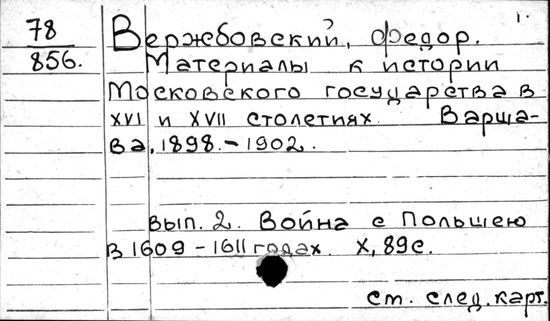 1.
78
856.
Вержбовский, Федор.
Материалы к истории
Московского государства в
XVI и XVII столетиях. Варша-
ва, 1898.-1902.
Вып. 2. Война с Польшею
в 1609-1611 годах. X, 89 с.
См. след. карт.